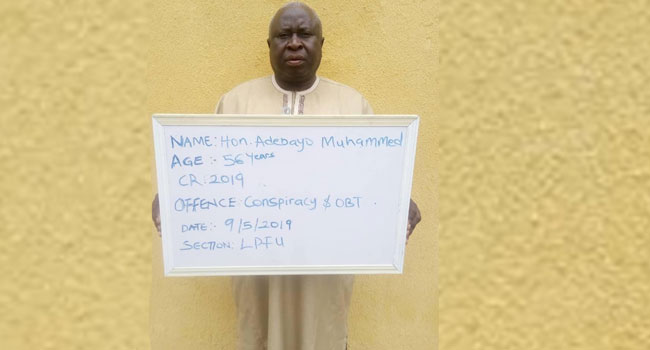 NAME: Hon. Adebayo Muhammed
AGE:- 56 Years
CR: 2019
OFFENCE: Conspiracy & OBT.
DATE:- 9/5/2019
SECTION: LPFU